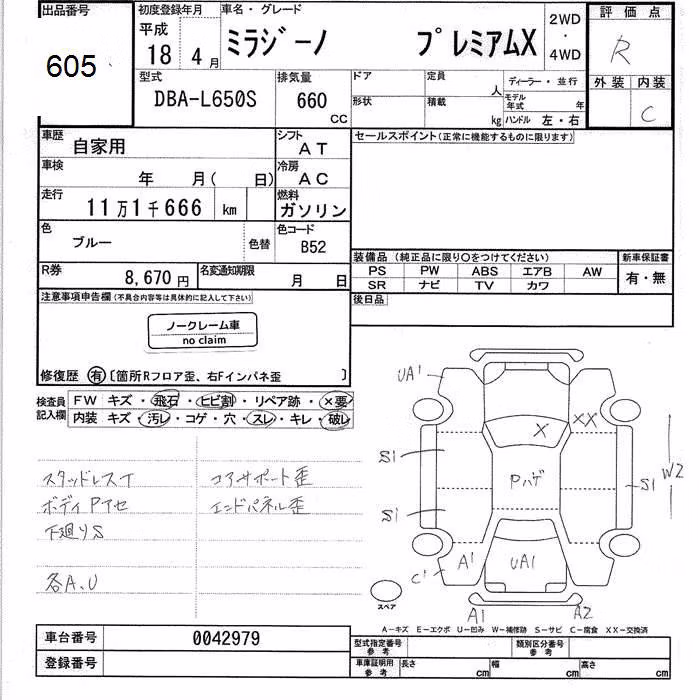 出品番号
605
初度登録年月
平成
18 4月
車名・グレード
ミラジーノ プレミアムX
2WD
・
4WD
評価点
R
外装 内装
C
型式
DBA-L650S
排気量
660
CC
ドア
定員
人
形状
積載
kg
ディーラー・並行
モデル
年式
年
ハンドル 左・右
車歴
自家用
シフト
AT
セールスポイント(正常に機能するものに限ります)
車検
年 月( 日)
冷房
AC
走行
11万1千666 km
燃料
ガソリン
色
ブルー
色替
色コード
B52
装備品(純正品に限り〇をつけてください)
PS PW ABS エアB AW
SR ナビ TV カワ
新車保証書
有・無
R券
8,670円
名変通知期限
月 日
後日品
注意事項申告欄(不具合内容等は具体的に記入して下さい)
ノークレーム車
no claim
修復歴 有 〔箇所Rフロア歪、右Fインパネ歪 〕
検査員
記入欄
FW キズ・飛石・ヒビ割・リペア跡・×要
内装 キズ・汚レ・コゲ・穴・スレ・キレ・破レ
スタッドレスT
コアサポート歪
ボディPアセ
エンドパネル歪
下廻りS
各A、U
UA1
XX
X
S1
Pハゲ
S1
W2
S1
A1
UA1
C1
スペア
A1
A2
A-キズ E-エクボ U-凹み W-補修跡 S-サビ C-腐食 XX-交換済
車台番号
0042979
登録番号
型式指定番号
参考
類別区分番号
参考
車庫証明用
参考
長さ
cm
幅
cm
高さ
cm